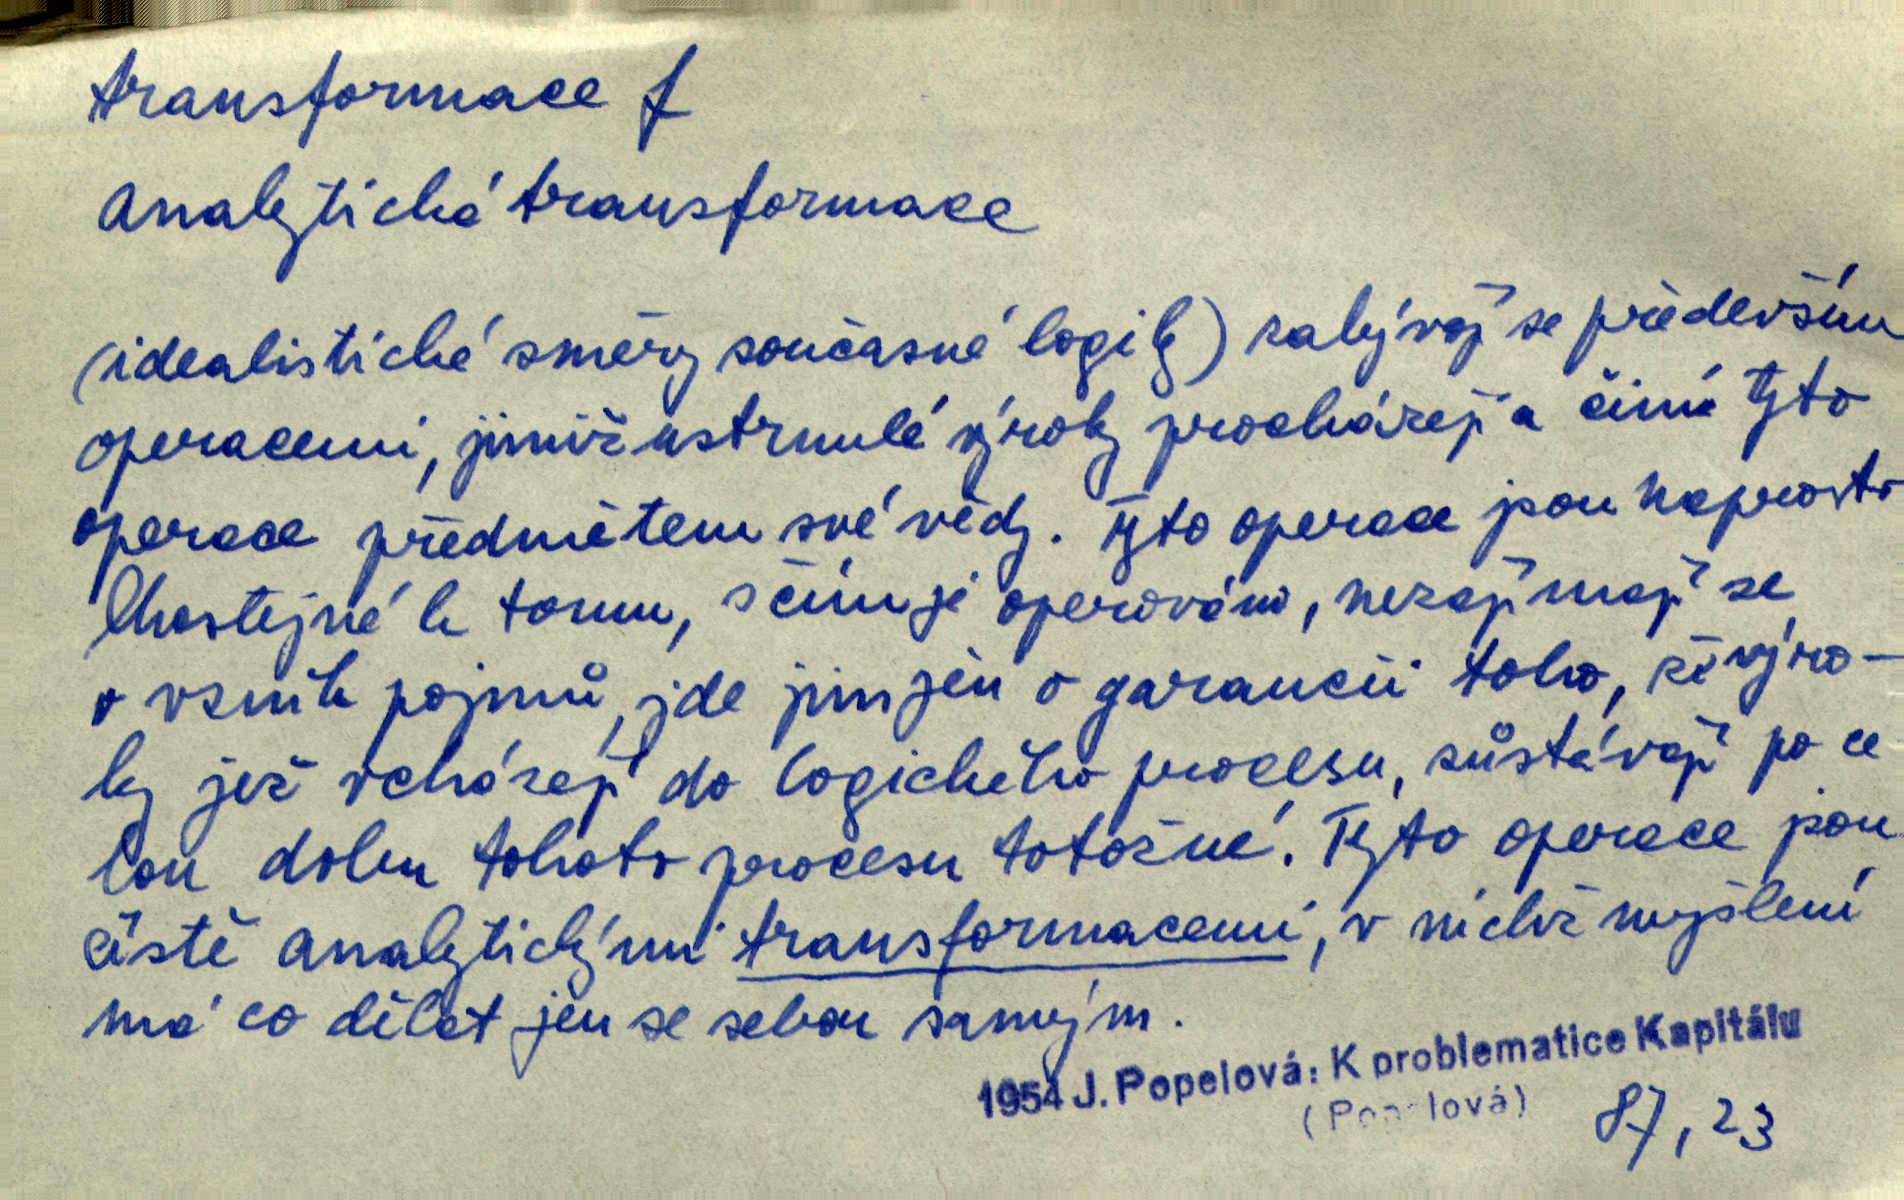 transformace f
analytická transformace
(idealistické směry současné logiky) zabývají se především
operacemi, jimiž ustrnulé výroky procházejí a činí tyto
operace předmětem své vědy. Tyto operace jsou naprosto
lhostejné k tomu, s čím je operováno, nezajímají se
o vznik pojmů, jde jim jen o garancii toho, že výro-
ky jež vcházejí do logického procesu, zůstávají po ce
lou dobu tohoto procesu totožné. Tyto operace jsou
čistě analytickými transformacemi, v nichž myšlení
má co dělat jen se sebou samým.
1954 J. Popelová: K problematice Kapitálu
(Popelová)
87, 23